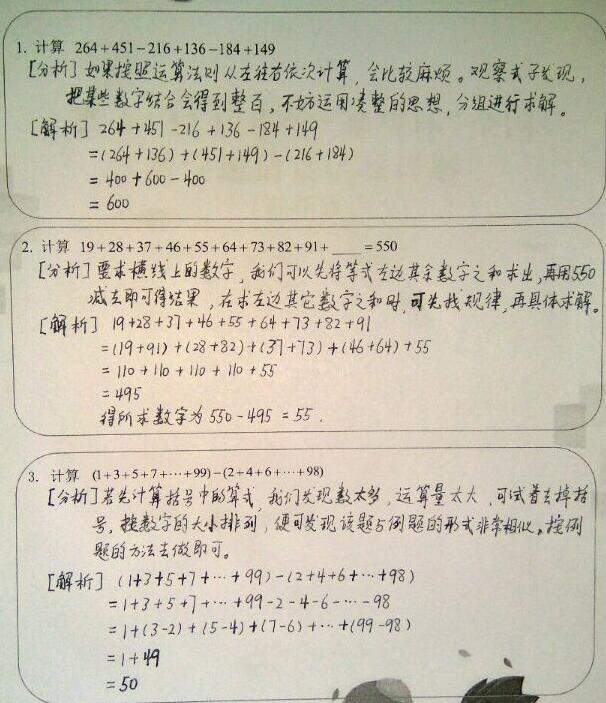 1. 计算 264+451-216+136-184+149
[分析] 如果按照运算法则从左往右依次计算, 会比较麻烦。观察式子发现,
把某些数字结合会得到整百, 不妨运用凑整的思想, 分组进行求解。
[解析] 264+451-216+136-184+149
=(264+136)+(451+149)-(216+184)
=400+600-400
=600
2. 计算 19+28+37+46+55+64+73+82+91+____=550
[分析] 要求横线上的数字, 我们可以先将等式左边其余数字之和求出, 再用550
减去即可得结果, 在求左边其它数字之和时, 可先找规律, 再具体求解。
[解析] 19+28+37+46+55+64+73+82+91
=(19+91)+(28+82)+(37+73)+(46+64)+55
=110+110+110+110+55
=495
得所求数字为550-495=55.
3. 计算 (1+3+5+7+···+99)-(2+4+6+···+98)
[分析] 若先计算括号中的算式, 我们发现数太多, 运算量太大, 可试着去掉括
号, 按数字的大小排列, 便可发现该题与例题的形式非常相似。按例
题的方法去做即可。
[解析] (1+3+5+7+···+99)-(2+4+6+···+98)
=1+3+5+7+···+99-2-4-6-···-98
=1+(3-2)+(5-4)+(7-6)+···+(99-98)
=1+49
=50